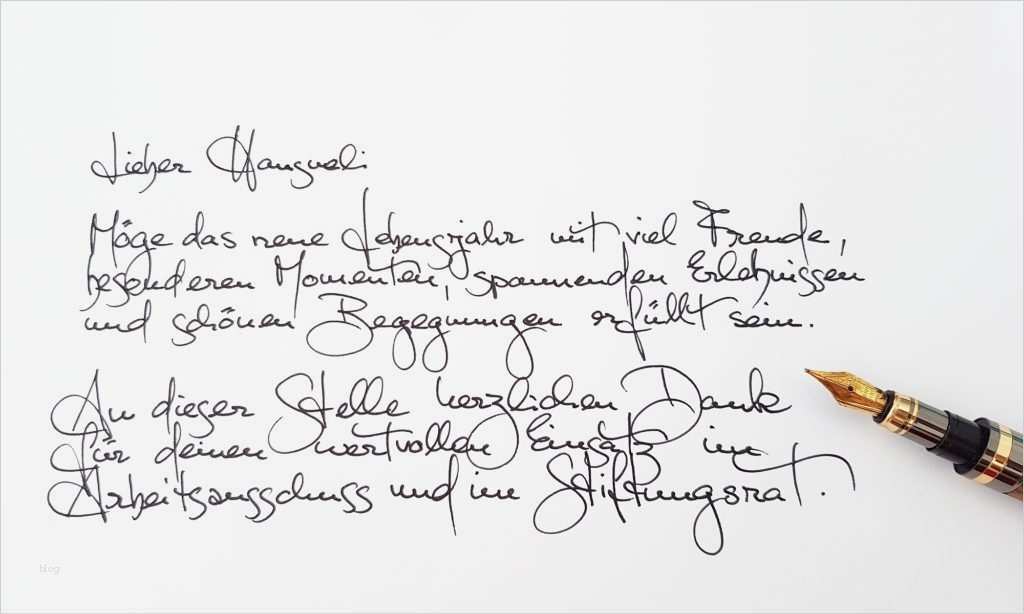 Lieber Hansueli
Möge das neue Lebensjahr mit viel Freude,
besonderen Momenten, spannenden Erlebnissen
und schönen Begegnungen erfüllt sein.
An dieser Stelle herzlichen Dank
für deinen wertvollen Einsatz im
Arbeitsausschuss und im Stiftungsrat.
blog